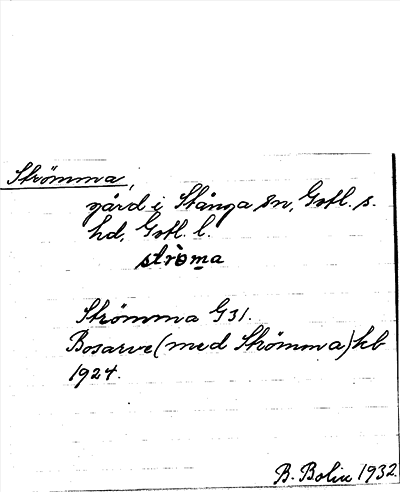 Strömma,
gård i Stånga sn, Gotl. s.
hd, Gotl. l.
stròma
Strömma G31.
Bosarve (med Strömma) kb
1924.
B. Bolin 1932.